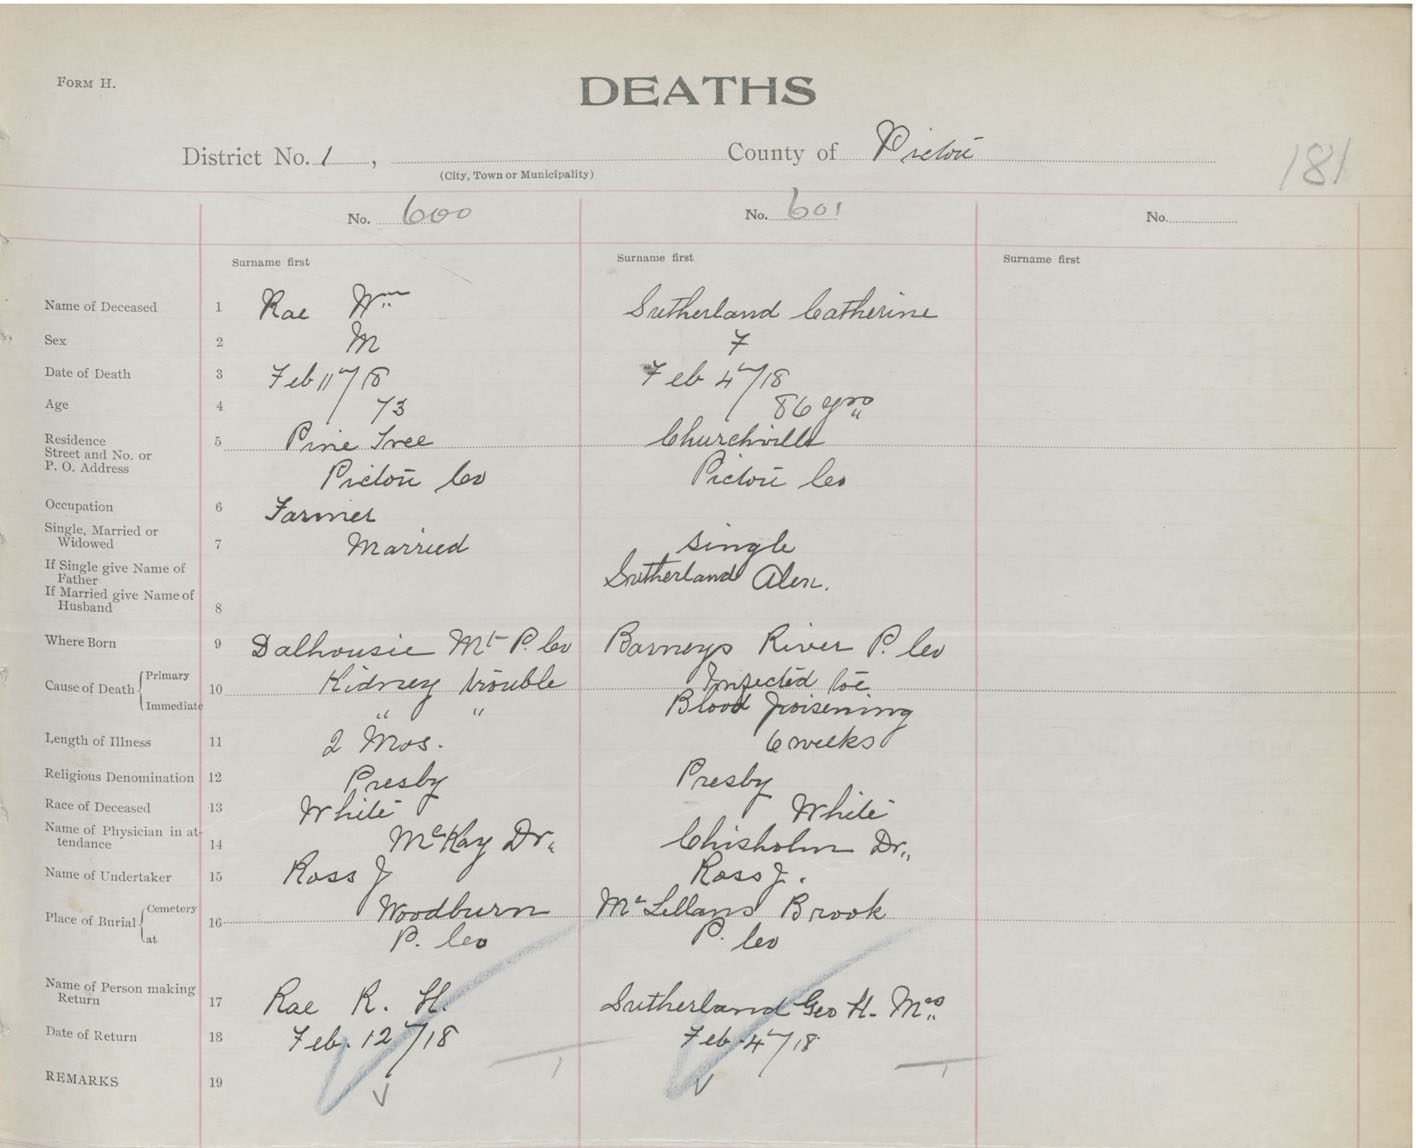 FORM H.
DEATHS
District No. 1 , County of Pictou
(City, Town or Municipality)
181
No. 600 No. 601 No.
Surname first Surname first Surname first
Name of Deceased 1 Rae Wm Sutherland Catherine
Sex 2 M F
Date of Death 3 Feb 11/18 Feb 4/18
Age 4 73 86 yrs
Residence 5 Pine Tree Churchville
Street and No. or
P. O. Address Pictou Co Pictou Co
Occupation 6 Farmer
Single, Married or
Widowed 7 Married Single
If Single give Name of
Father Sutherland Alex.
If Married give Name of
Husband 8
Where Born 9 Dalhousie Mt P. Co Barneys River P. Co
Cause of Death Primary 10 Kidney trouble Infected toe
Immediate " " Blood Poisening
Length of Illness 11 2 Mos. 6 weeks
Religious Denomination 12 Presby Presby
Race of Deceased 13 White White
Name of Physician in at-
tendance 14 McKay Dr. Chisholm Dr.
Name of Undertaker 15 Ross J Ross J.
Place of Burial Cemetery 16 Woodburn McLellans Brook
at P. Co P. Co
Name of Person making
Return 17 Rae R. H. Sutherland Geo H. Mrs
Date of Return 18 Feb. 12/18 Feb. 4/18
REMARKS 19